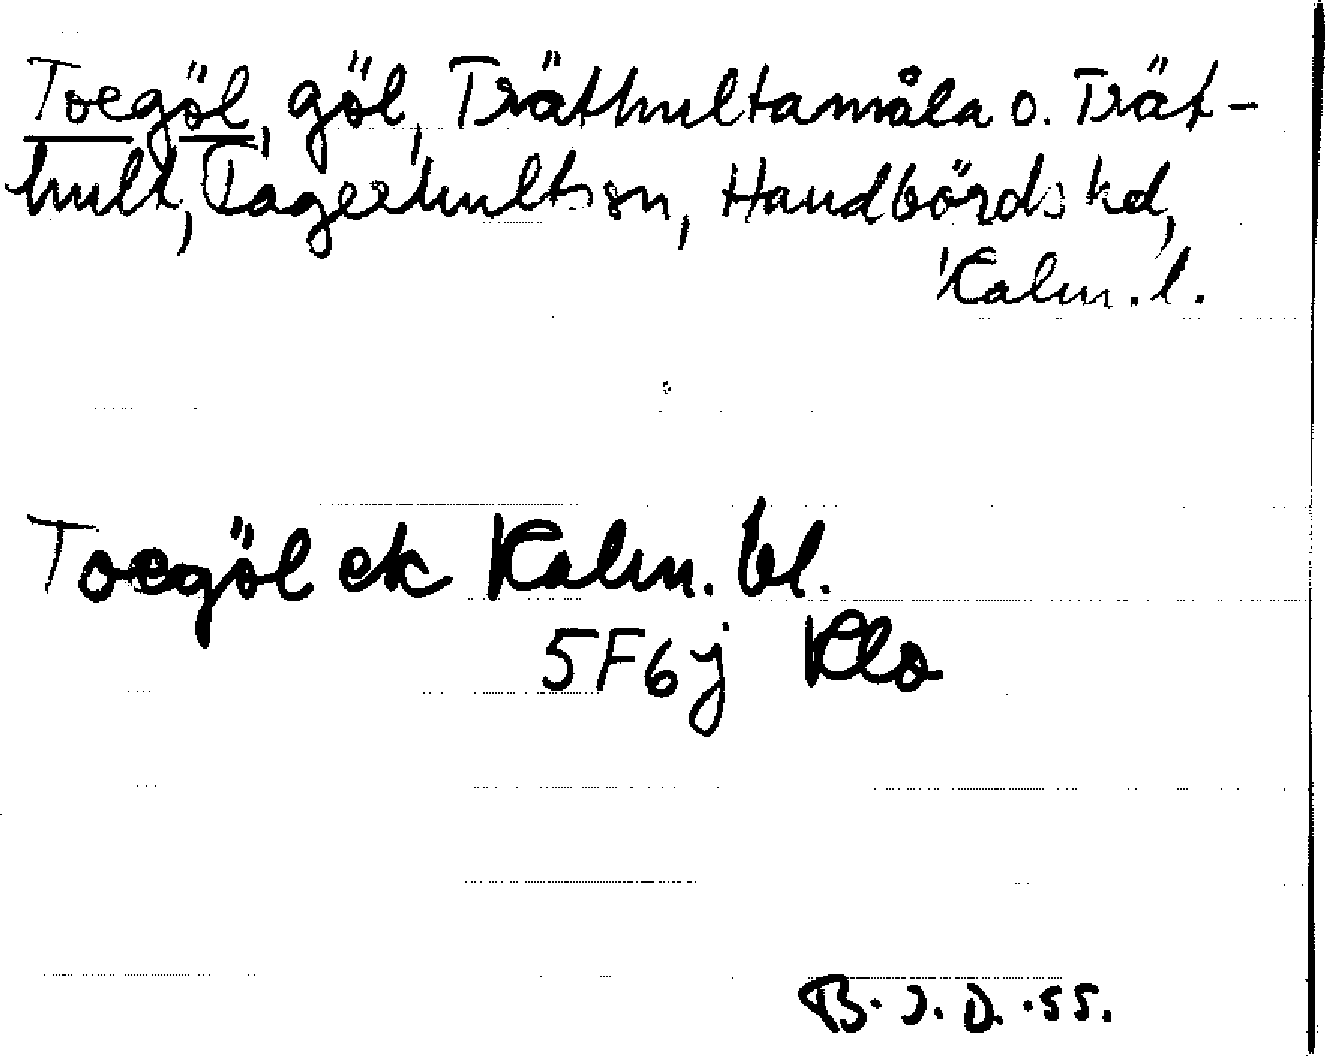 Toegöl, göl, Träthultamåla o. Trät-
hult, Fagerhults sn, Handbörds hd,
Kalm. l.
Toegöl ek Kalm. bl.
5F6j Klo
B.J.D. 55.